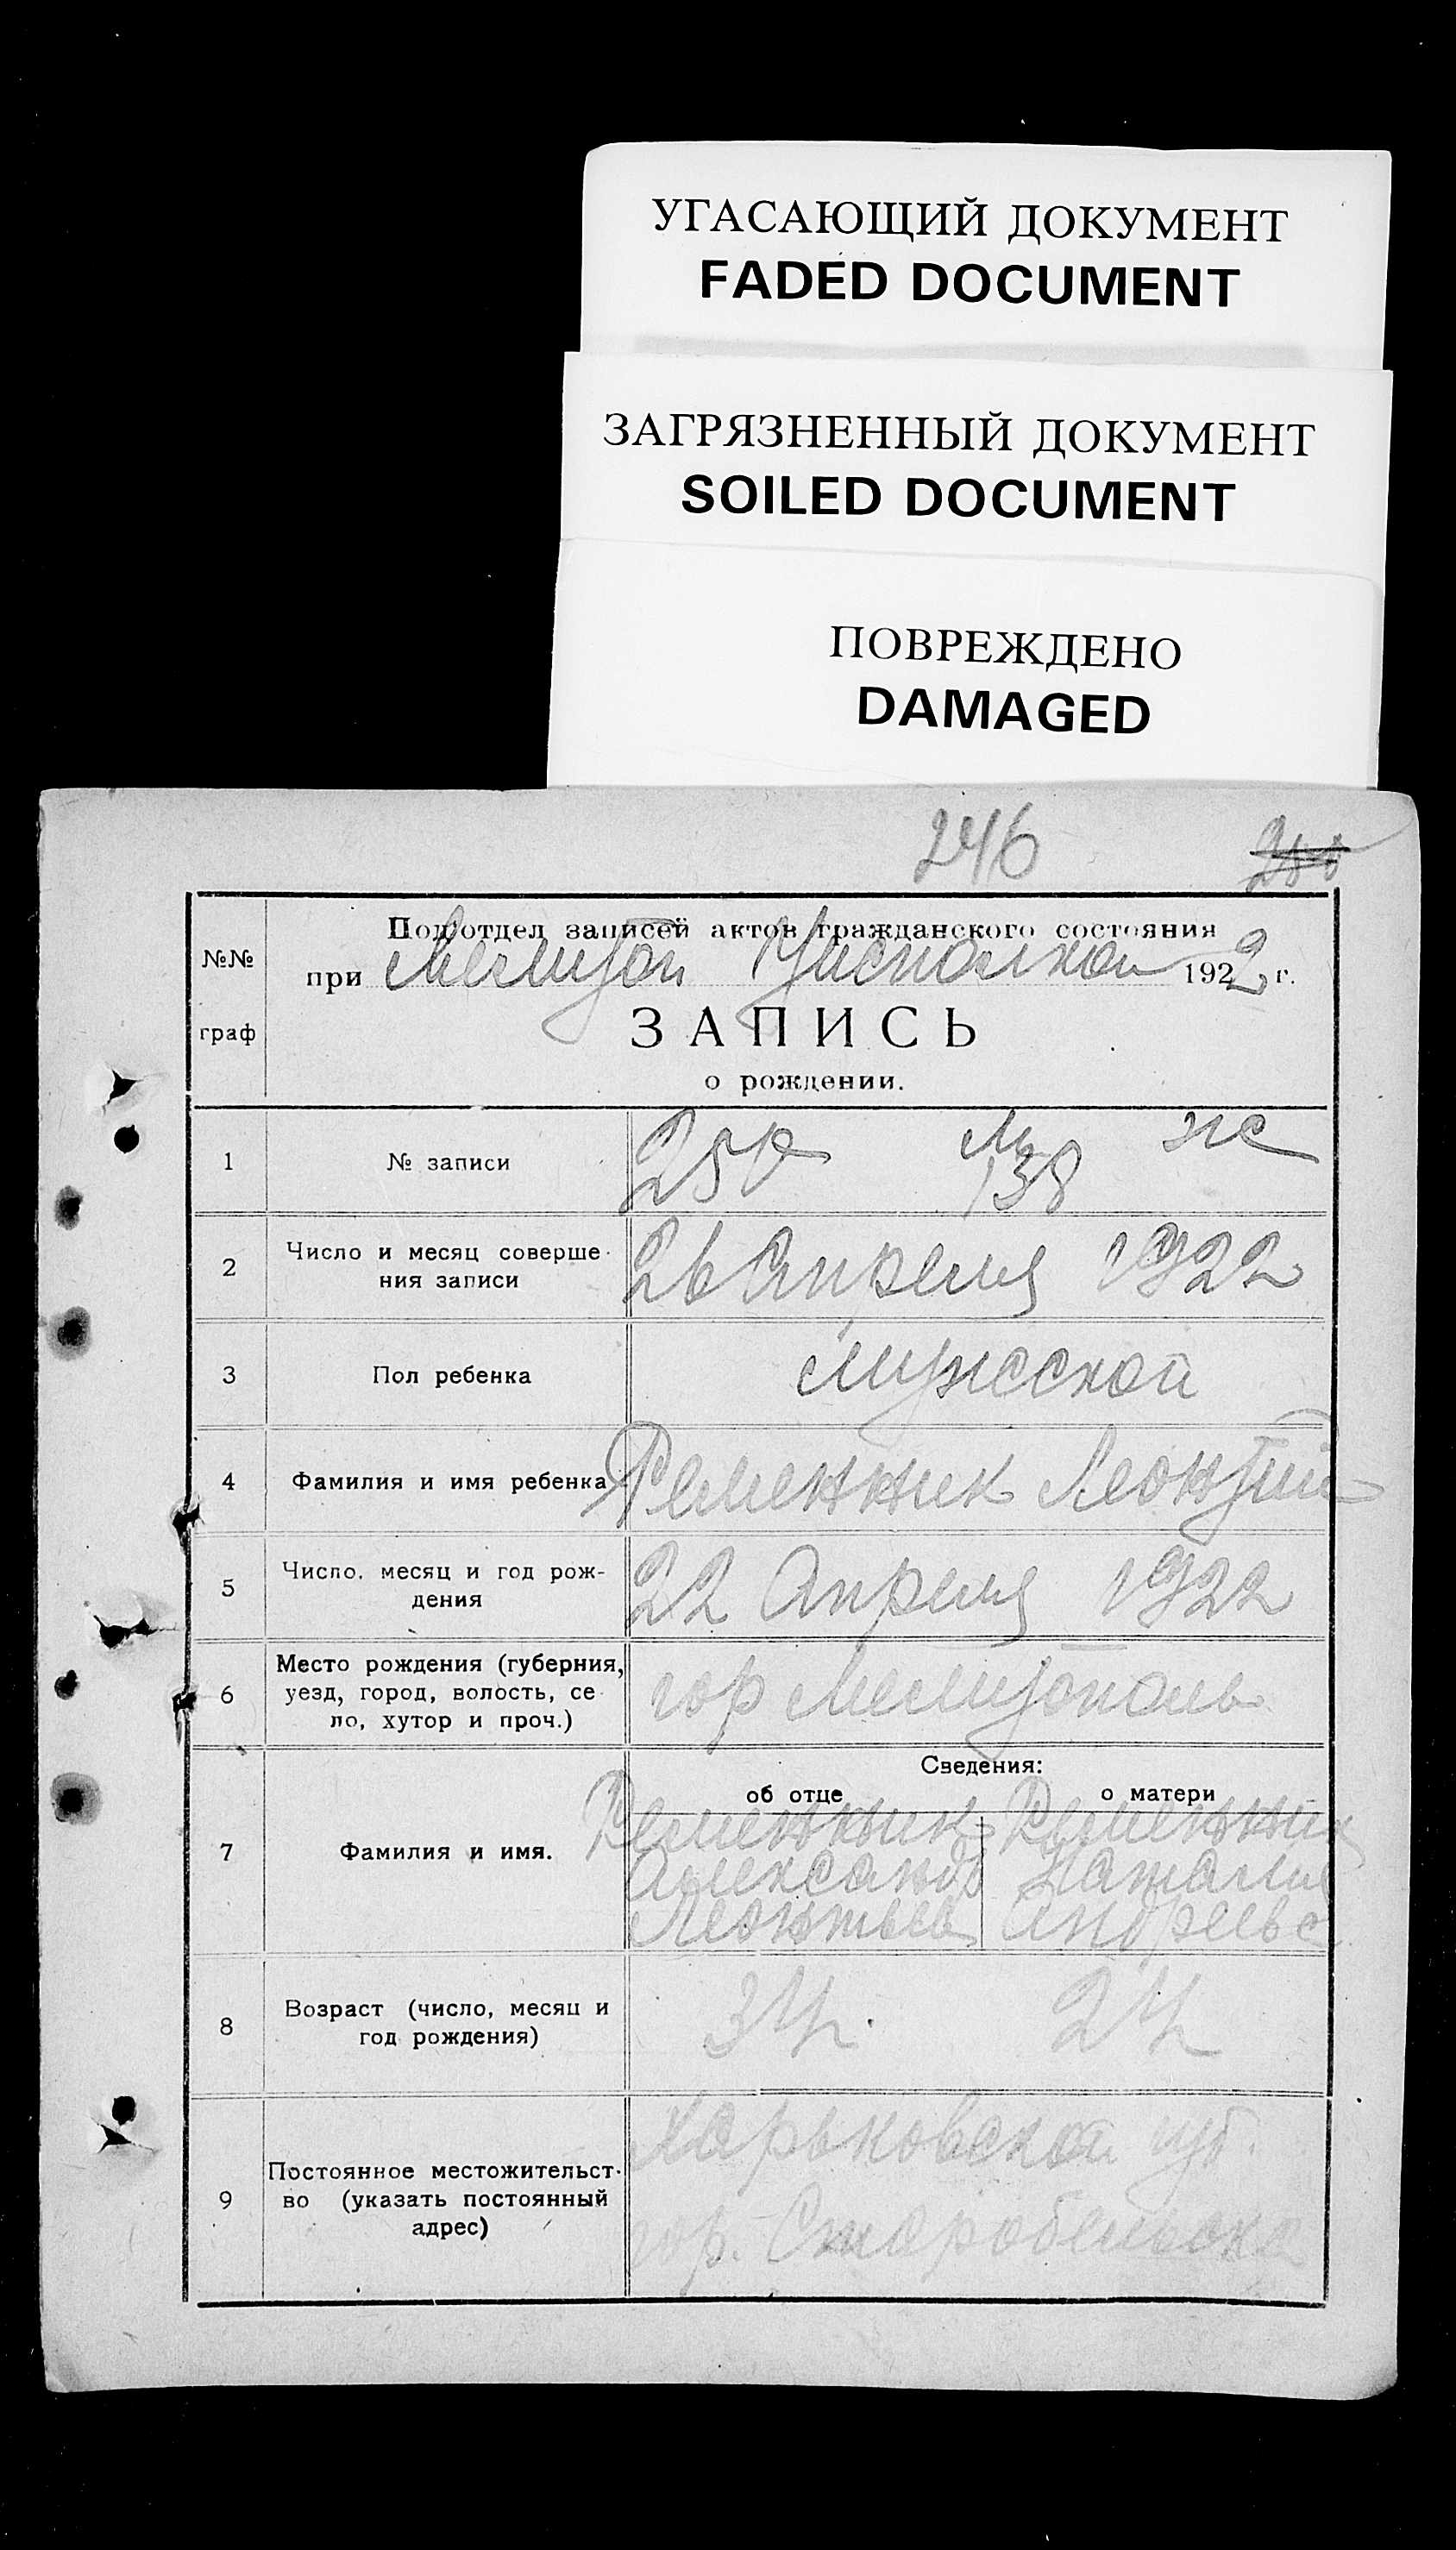 УГАСАЮЩИЙ ДОКУМЕНТ
FADED DOCUMENT
ЗАГРЯЗНЕННЫЙ ДОКУМЕНТ
SOILED DOCUMENT
ПОВРЕЖДЕНО
DAMAGED
246
№№ граф
Подотдел записей актов гражданского состояния
при Мелитоп Уисполком 1922 г.
ЗАПИСЬ
о рождении.
1 № записи 250 м 138 ж
2 Число и месяц соверше-
ния записи 26 Апреля 1922
3 Пол ребенка мужской
4 Фамилия и имя ребенка Ременник Леонтий
5 Число, месяц и год рож-
дения 22 Апреля 1922
6 Место рождения (губерния,
уезд, город, волость, се-
ло, хутор и проч.) гор Мелитополь
Сведения:
об отце о матери
7 Фамилия и имя. Ременник Ременник
Александр Наталия
Леонтьев Андреевс
8 Возраст (число, месяц и
год рождения) 34 24
9 Постоянное местожительст-
во (указать постоянный
адрес) Харьковской губ.
гор. Старобельска